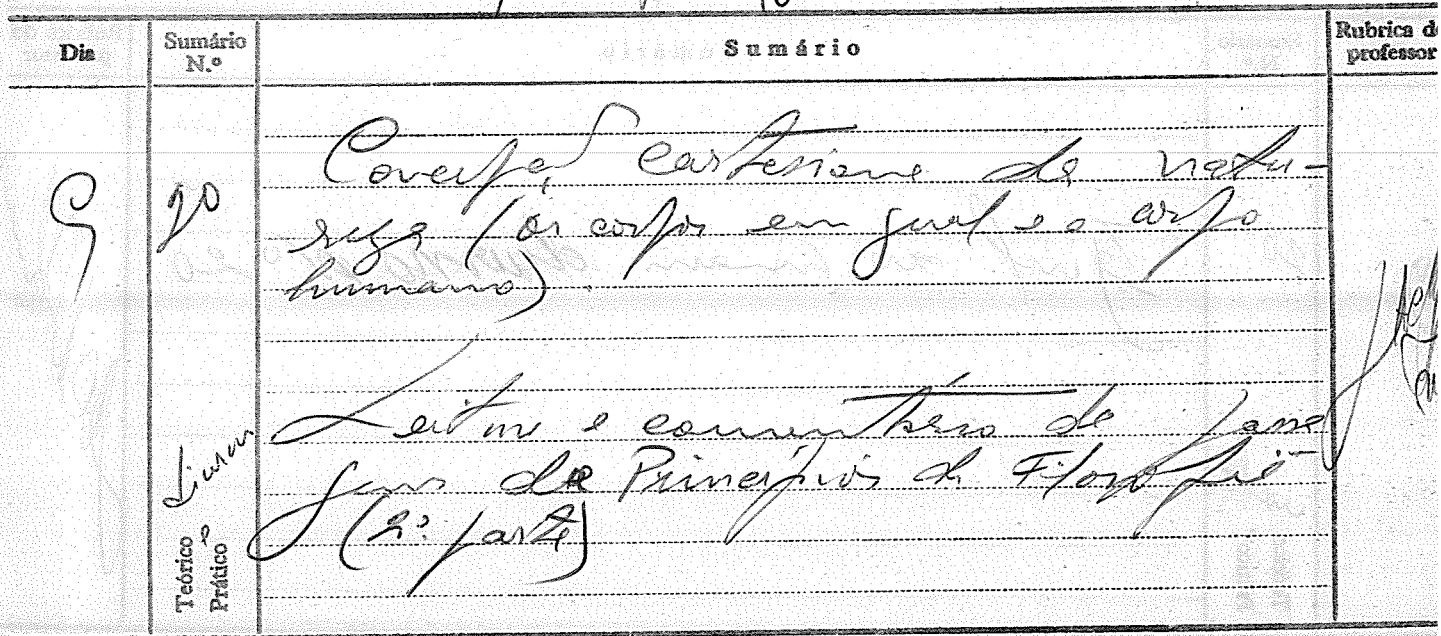 Dia
Sumário N.º
Sumário
Rubrica do professor
9
20
Concepção cartesiana da natu-
reza (os corpos em geral e o corpo
humano).
Leitura e comentário de passa
gens de Princípios da Filosofia
(2.ª parte)
Teórico
Prático